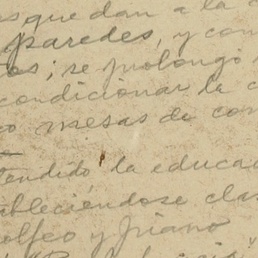 que dan a la
paredes, y con
os; se prolongó
condicionar la c
mesas de co
tendido la educa
ableciéndose clas
olfeo y piano